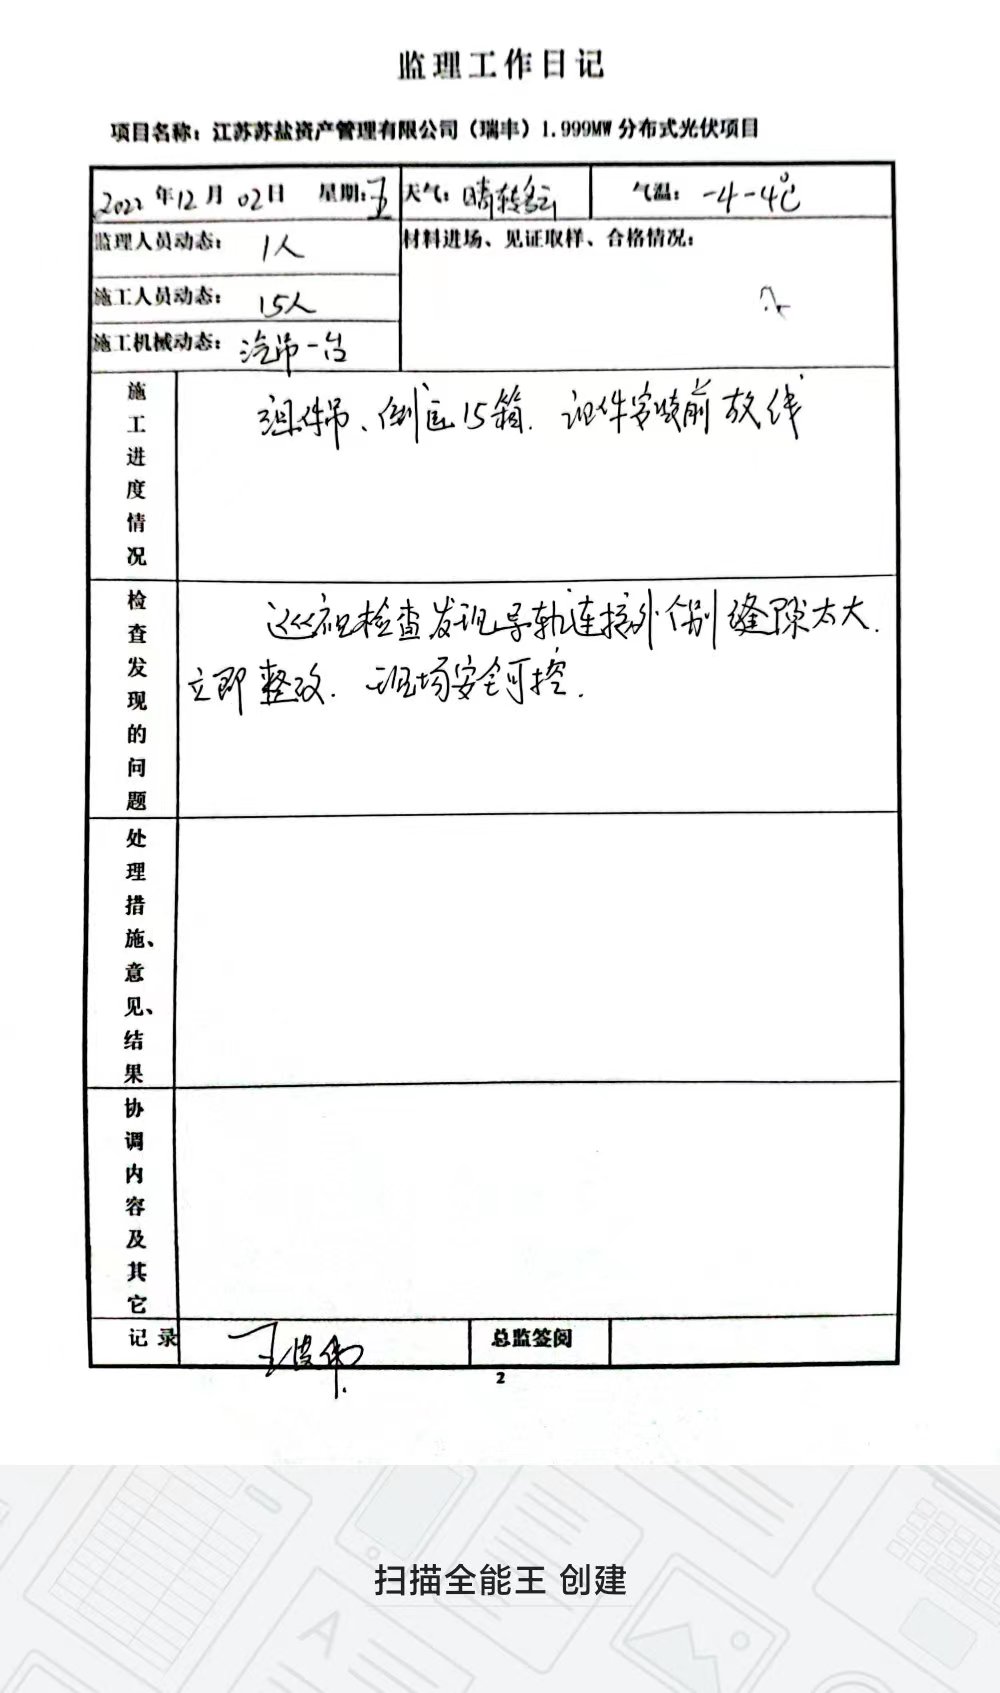 监理工作日记
项目名称：江苏苏盐资产管理有限公司（瑞丰）1.999MW分布式光伏项目
2022年12月02日 星期：五 天气：晴转多云 气温：-4-4℃
监理人员动态：1人 材料进场、见证取样、合格情况：
施工人员动态：15人
施工机械动态：汽吊一台
施工进度情况
组件吊、倒运15箱. 组件安装前放线
检查发现的问题
巡视检查发现导轨连接处个别缝隙太大.
立即整改. 现场安全可控.
处理措施、意见、结果
协调内容及其它
记录 总监签阅
2
扫描全能王 创建